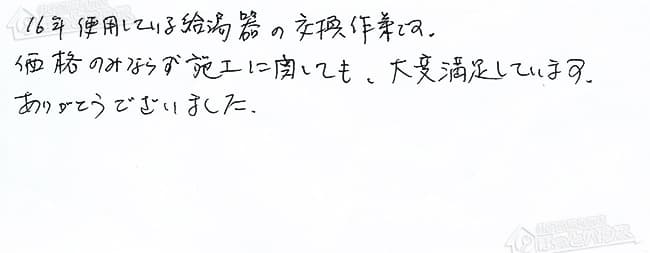 16年使用している給湯器の交換作業です。
価格のみならず施工に関しても、大変満足しています。
ありがとうございました.